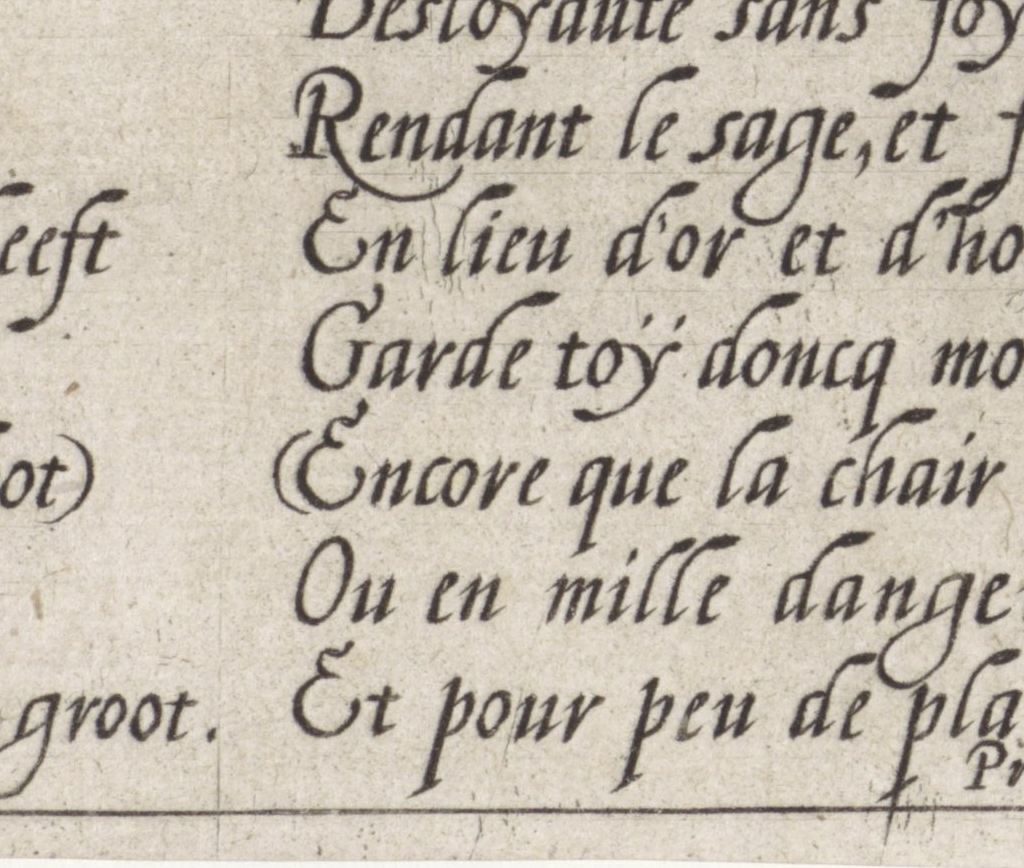 Desloyauté sans joy
Rendant le sage, et f
eeft
En lieu d'or et d'ho
Garde toÿ doncq mo
ot)
(Encore que la chair
Ou en mille dange
groot.
Et pour peu de pla
Pi